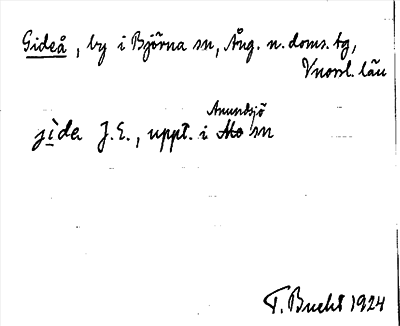 Gideå, by i Björna sn, Ång. n. doms. tg,
Vnorrl. län
Anundsjö
jìde J. E., uppt. i Mo sn
T. Bucht 1924